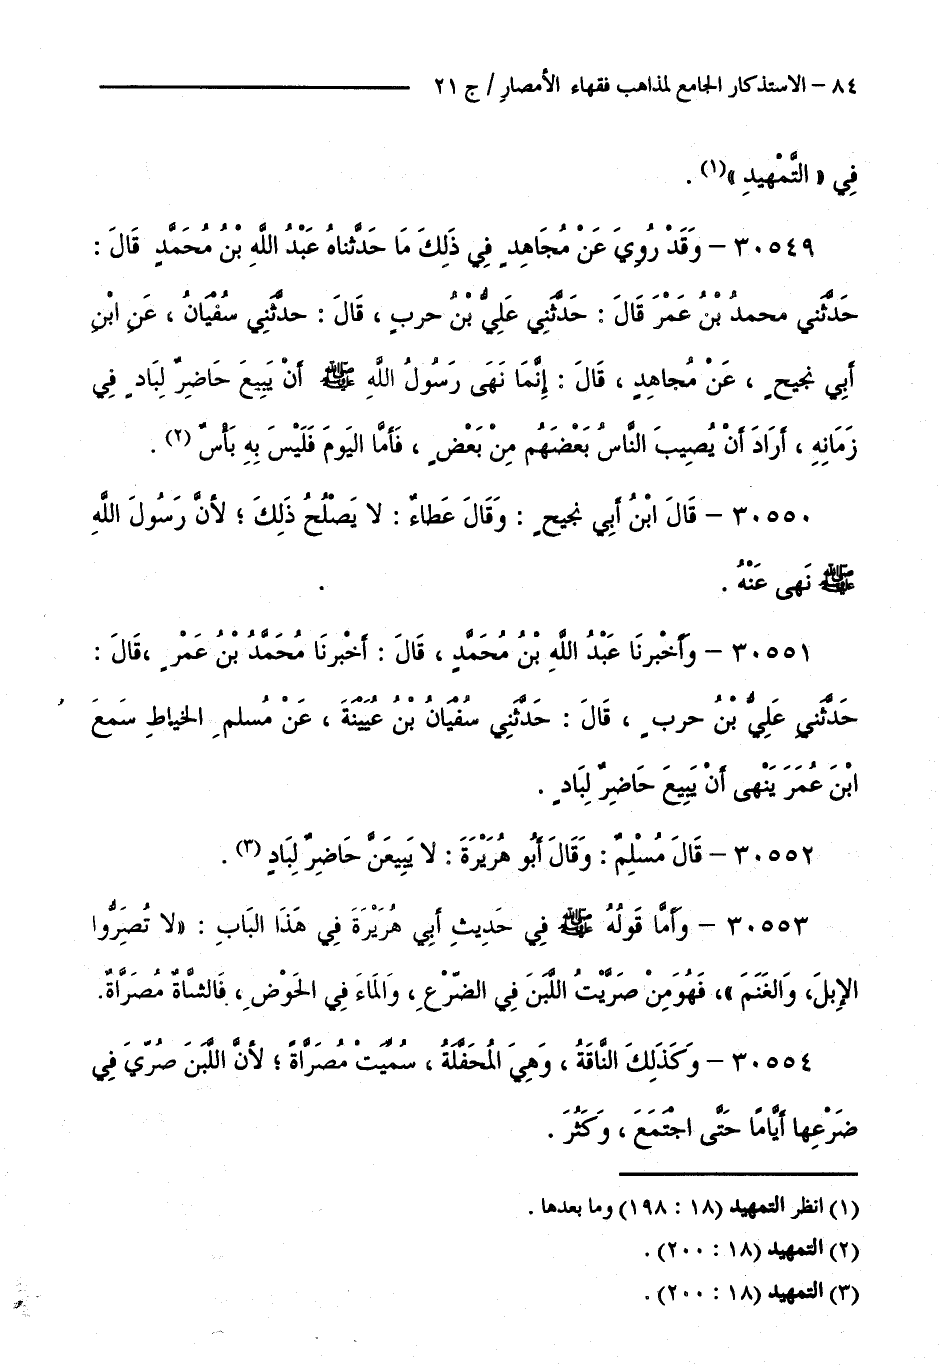 ٨٤ – الاستذكار الجامع لمذاهب فقهاء الأمصار / ج ٢١
فِي « التَّمْهِيدِ »(١) .
٣٠٥٤٩ – وَقَدْ رُوِيَ عَنْ مُجَاهِدٍ فِي ذَلِكَ مَا حَدَّثَناهُ عَبْدُ اللَّهِ بْنُ مُحَمَّدٍ قَالَ :
حَدَّثَنِي محمدُ بْنُ عَمْرَ قَالَ : حَدَّثَنِي عَلِيُّ بْنُ حربٍ ، قَالَ : حدثَنِي سُفْيَانُ ، عَنِ ابْنِ
أَبِي نجيحٍ ، عَنْ مُجاهِدٍ ، قَالَ : إِنَّمَا نَهَى رَسُولُ اللَّهِ ﷺ أَنْ يَبِيعَ حَاضِرٌ لِبَادٍ فِي
زَمَانِهِ ، أَرَادَ أَنْ يُصِيبَ النَّاسُ بَعْضَهُم مِنْ بَعْضٍ ، فَأَمَّا اليَومَ فَلَيْسَ بِهِ بَأْسٌ (٢) .
٣٠٥٥٠ – قَالَ ابْنُ أَبِي نجيحٍ : وَقَالَ عَطاءٌ : لا يَصْلُحُ ذَلِكَ ؛ لأنَّ رَسُولَ اللَّهِ
ﷺ نَهى عَنْهُ .
٣٠٥٥١ – وَأَخْبرنَا عَبْدُ اللَّهِ بْنُ مُحَمَّدٍ ، قَالَ : أَخْبرنَا مُحَمَّدُ بْنُ عَمْرٍ ،قَالَ :
حَدَّثَنيِ عَلِيُّ بْنُ حربٍ ، قَالَ : حَدَّثَنِي سُفْيَانُ بْنُ عُيَيْنَةَ ، عَنْ مُسلمِ الخياطِ سَمعَ
ابْنَ عُمَرَ يَنْهى أَنْ يَبِيعَ حَاضِرٌ لِبَادٍ .
٣٠٥٥٢ – قَالَ مُسْلِمٌ : وَقَالَ أَبُو هُرَيْرَةَ : لا يَبِيعَنَّ حَاضِرٌ لِبَادٍ (٣) .
٣٠٥٥٣ – وَأَمَّا قَولُهُ ﷺ فِي حَدِيثِ أَبِي هُرَيْرَةَ فِي هَذَا البَابِ : «لا تُصَرُّوا
الإِبلَ، وَالغَنَمَ »، فَهُوَمِنْ صَرَّيْتُ اللَّبَنَ فِي الضّرْعِ ، وَالمَاءَ فِي الحَوْضِ ، فَالشَّاةُ مُصَرَّاةٌ.
٣٠٥٥٤ – وَكَذَلِكَ النَّاقَةُ ، وَهِيَ المُحَفَّلَةُ ، سُمِّيَتْ مُصَرَّاةً ؛ لأنَّ اللَّبَنَ صُرِّيَ فِي
ضَرْعِها أَيَّامًا حَتَّى اجْتَمَعَ ، وَكَثُرَ .
(١) انظر التمهيد (١٨ : ١٩٨) وما بعدها .
(٢) التمهيد (١٨ : ٢٠٠) .
(٣) التمهيد (١٨ : ٢٠٠) .